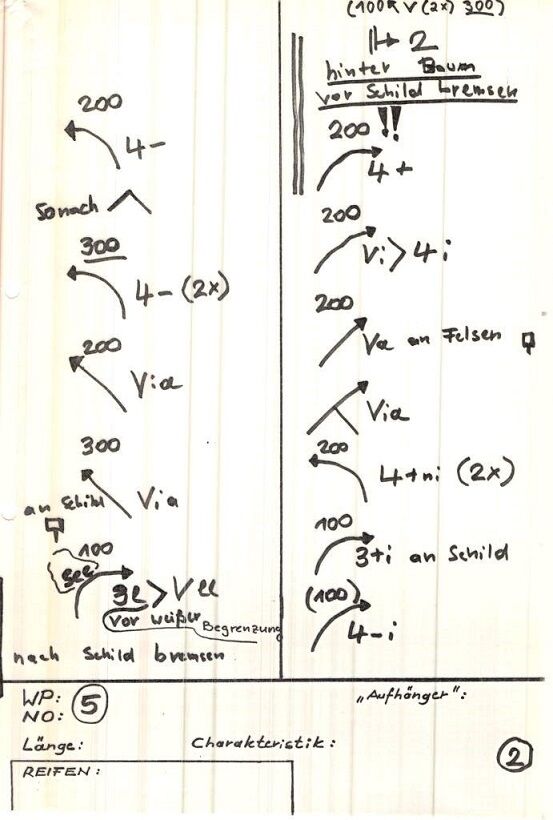 200
4-
Sonach
300
4- (2x)
200
Via
300
Via
an Schild
100
See
3L > Vll
vor weißer Begrenzung
nach Schild bremsen
(100 V (2x) 300)
2
hinter Baum
vor Schild bremsen
200 !!
4+
200
Vi > 4i
200
Va an Felsen
Via
200
4+ni (2x)
100
3+i an Schild
(100)
4-i
WP:
NO: 5
„Aufhänger":
Länge: Charakteristik:
2
REIFEN: